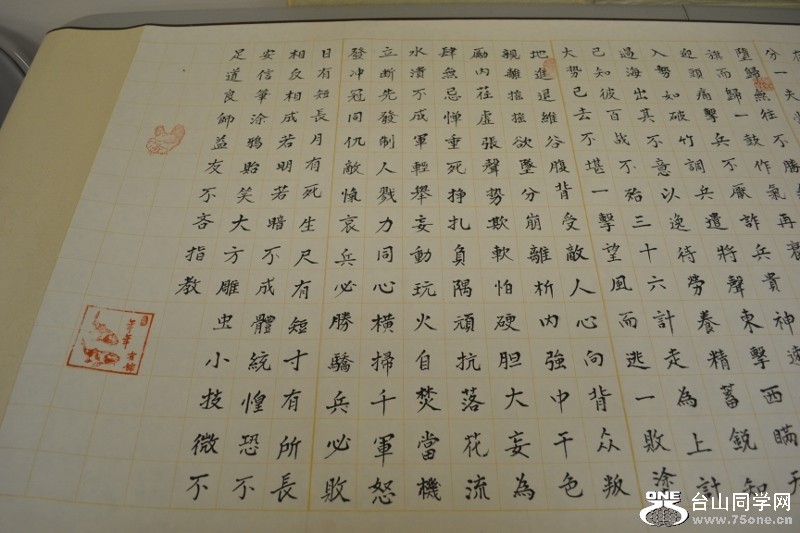 歸無往不勝
而歸一鼓作氣再衰
迎頭痛擊兵不厭詐兵貴神速
入勢如破竹調兵遣將聲東擊西瞞天
過海出其不意以逸待勞養精蓄銳知
己知彼百戰不殆三十六計走為上計
大勢已去不堪一擊望風而逃一敗塗
地進退維谷腹背受敵人心向背众叛
親離搖搖欲墜分崩離析內強中干色
励內荏虛張聲勢欺軟怕硬胆大妄為
肆無忌憚垂死掙扎負隅頑抗落花流
水潰不成軍輕舉妄動玩火自焚當機
立斷先發制人戮力同心橫掃千軍怒
發冲冠同仇敵愾哀兵必勝驕兵必敗
日有短長月有死生尺有短寸有所長
相反相成若明若暗不成體統惶恐不
安信筆涂鴉貽笑大方雕虫小技微不
足道良師益友不吝指教
ONE 台山同学网
www.75one.cn